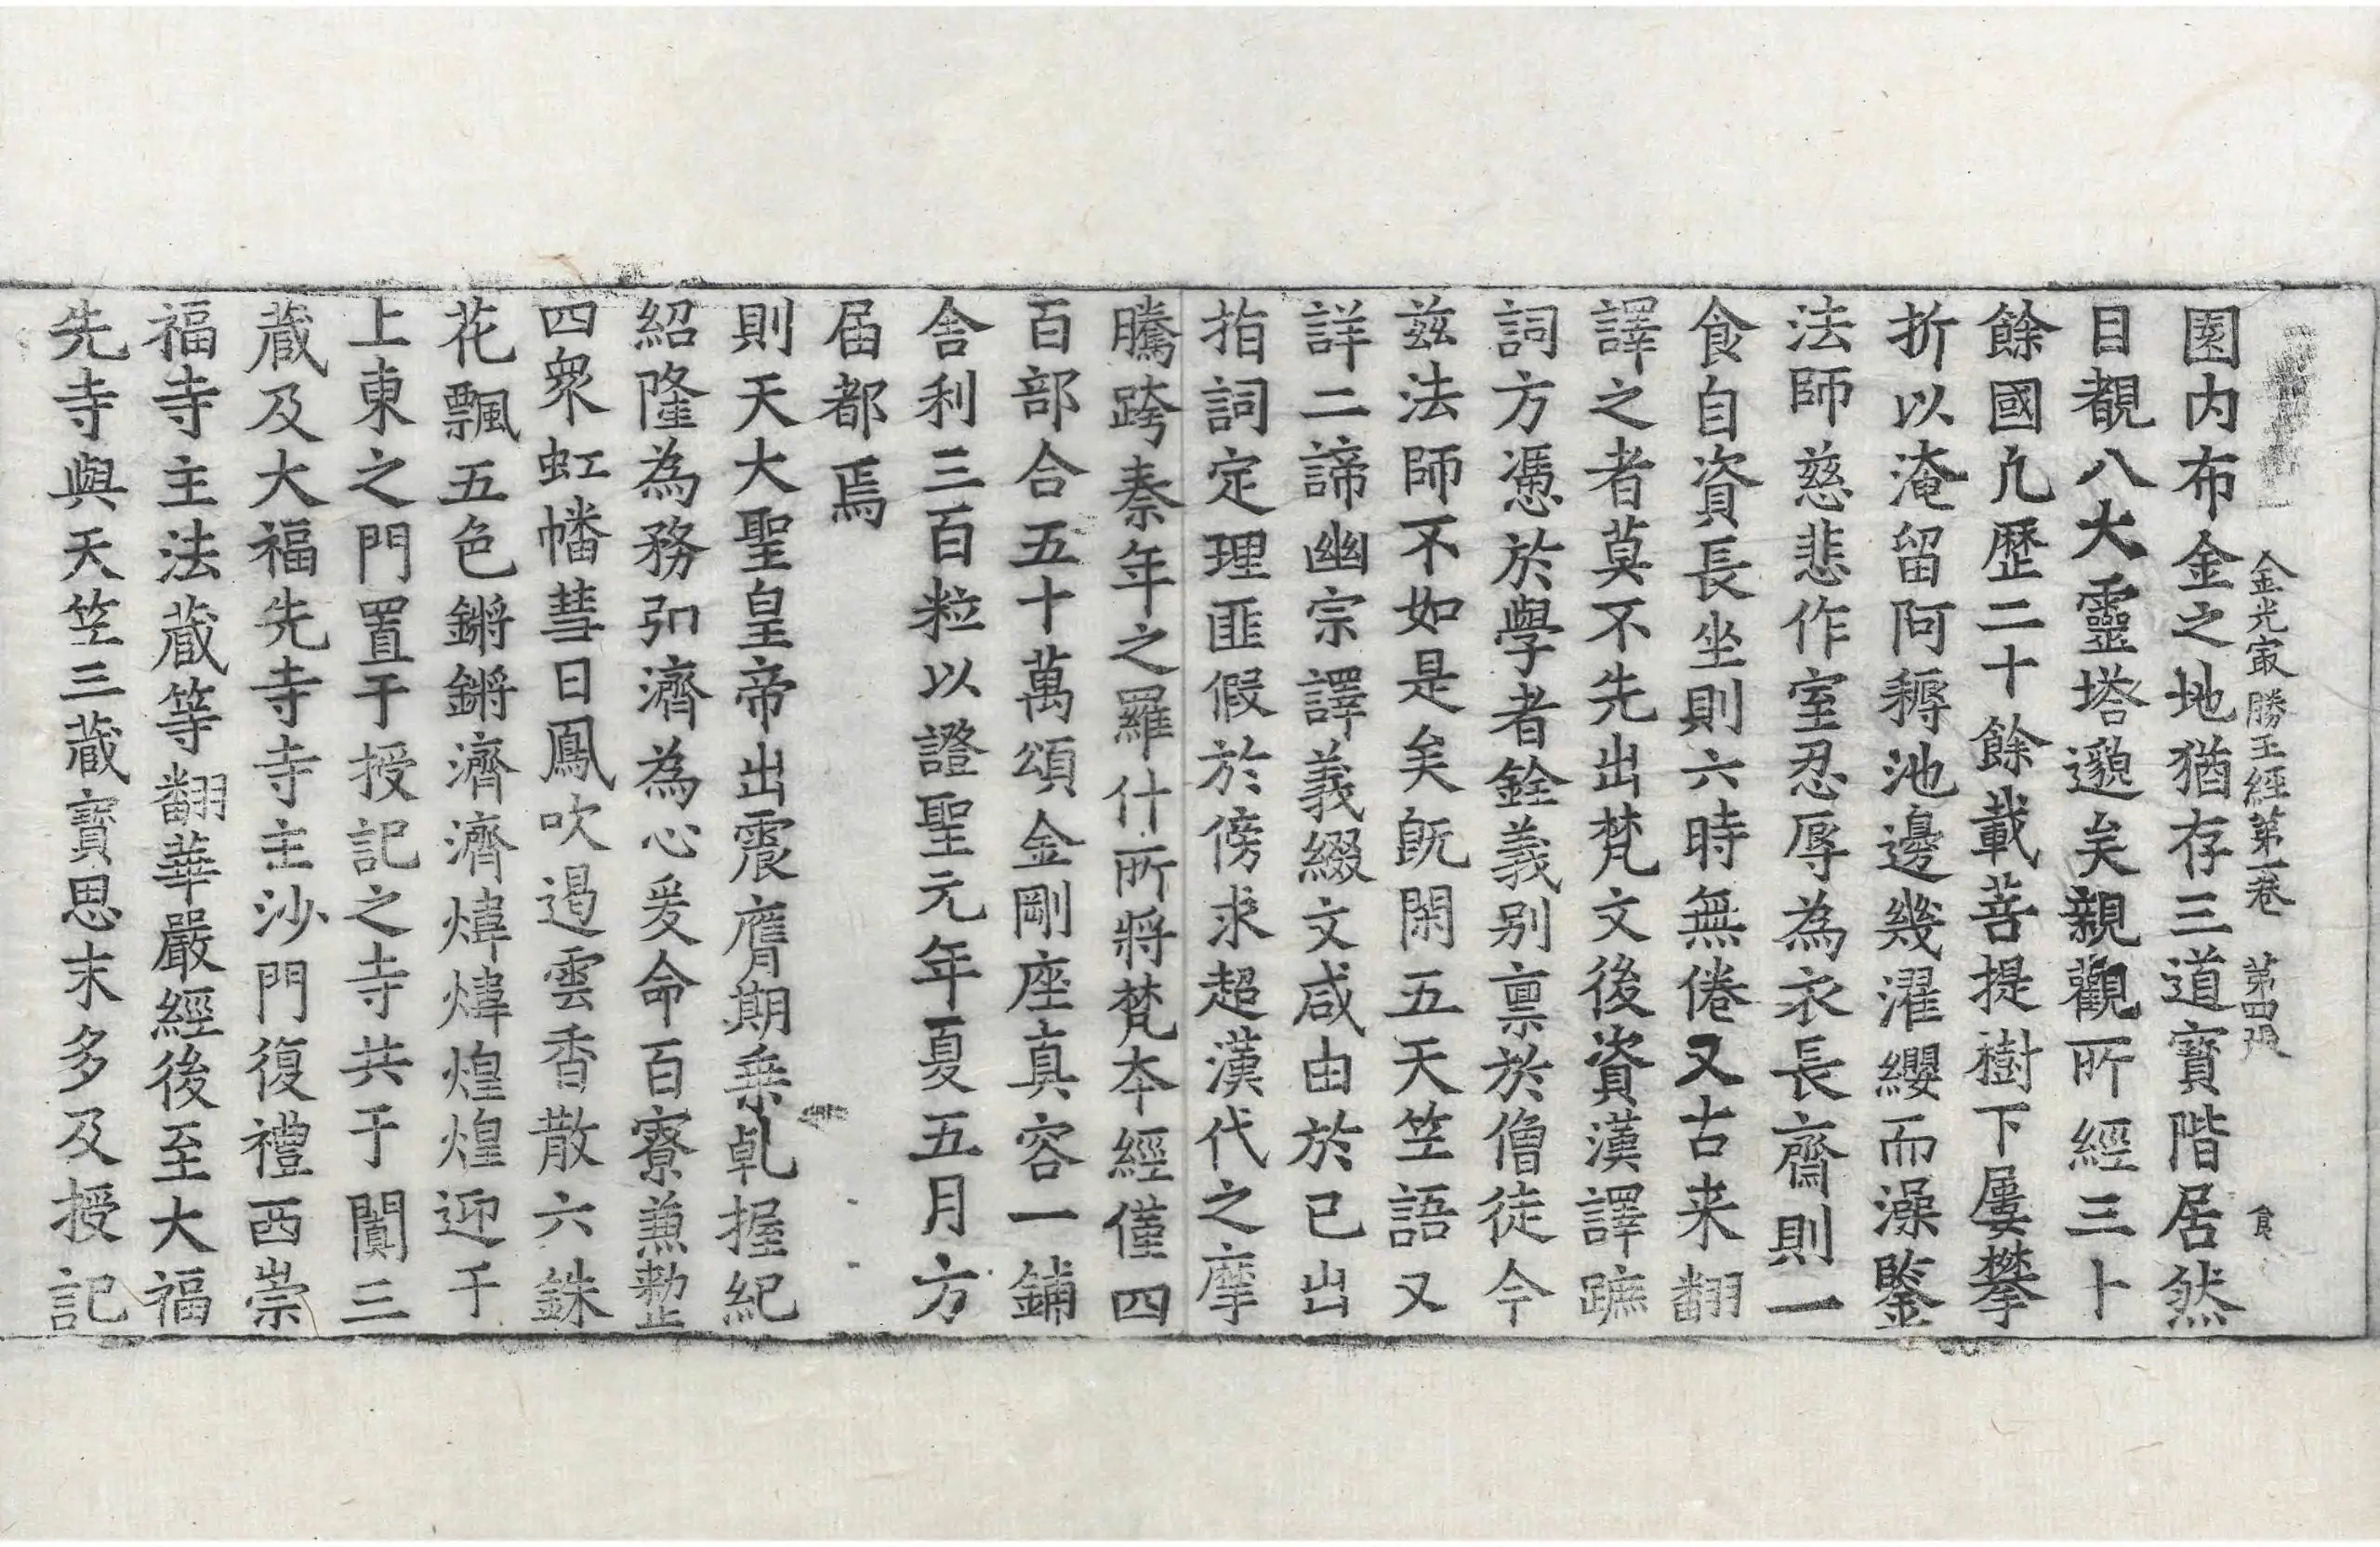 金光㝡勝王經第一卷　第四張　食
園内布金之地猶存三道寶階居然
目覩八大靈塔邈矣親觀所經三十
餘國凢歷二十餘載菩提樹下屢攀
折以淹留阿耨池邊幾濯纓而澡鑒
法師慈悲作室忍辱為衣長齋則一
食自資長坐則六時無倦又古来翻
譯之者莫不先出梵文後資漢譯蹠
詞方憑於學者銓義别禀於僧徒今
兹法師不如是矣旣閑五天笁語又
詳二諦幽宗譯義綴文咸由於已出
指詞定理匪假於傍求超漢代之摩
騰跨秦年之羅什所將梵本經僅四
百部合五十萬頌金剛座真容一鋪
舍利三百粒以證聖元年夏五月方
届都焉
則天大聖皇帝出震膺期乗乹握紀
紹隆為務弘濟為心爰命百寮兼整
四衆虹幡彗日鳳吹遏雲香散六銖
花飄五色鏘鏘濟濟煒煒煌煌迎于
上東之門置于授記之寺共于闐三
蔵及大福先寺寺主沙門復禮西崇
福寺主法蔵等翻華嚴經後至大福
先寺與天笁三蔵寶思末多及授記